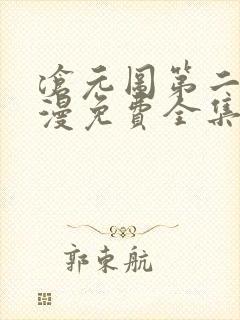 滄元圖第二
漫免費全集
郭束航